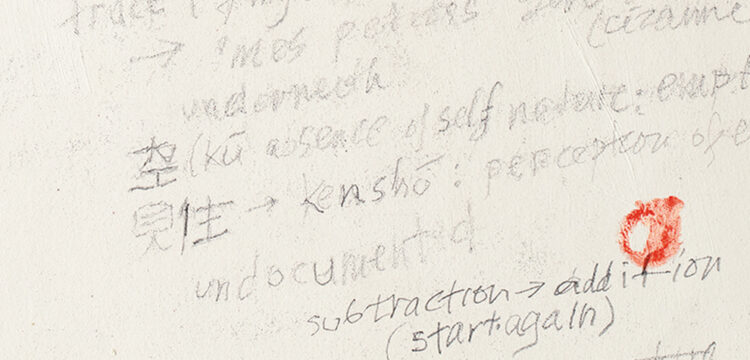 trace
→ 'mes petites
(cézanne
underneath
空 (kū absence of self nature: empt
見性 → kenshō: perception of e
undocumented
subtraction → addition
(start.again)